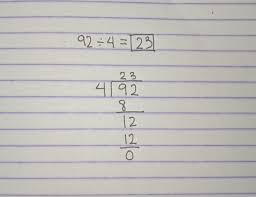 92÷4=23
23
4 92
8
12
12
0